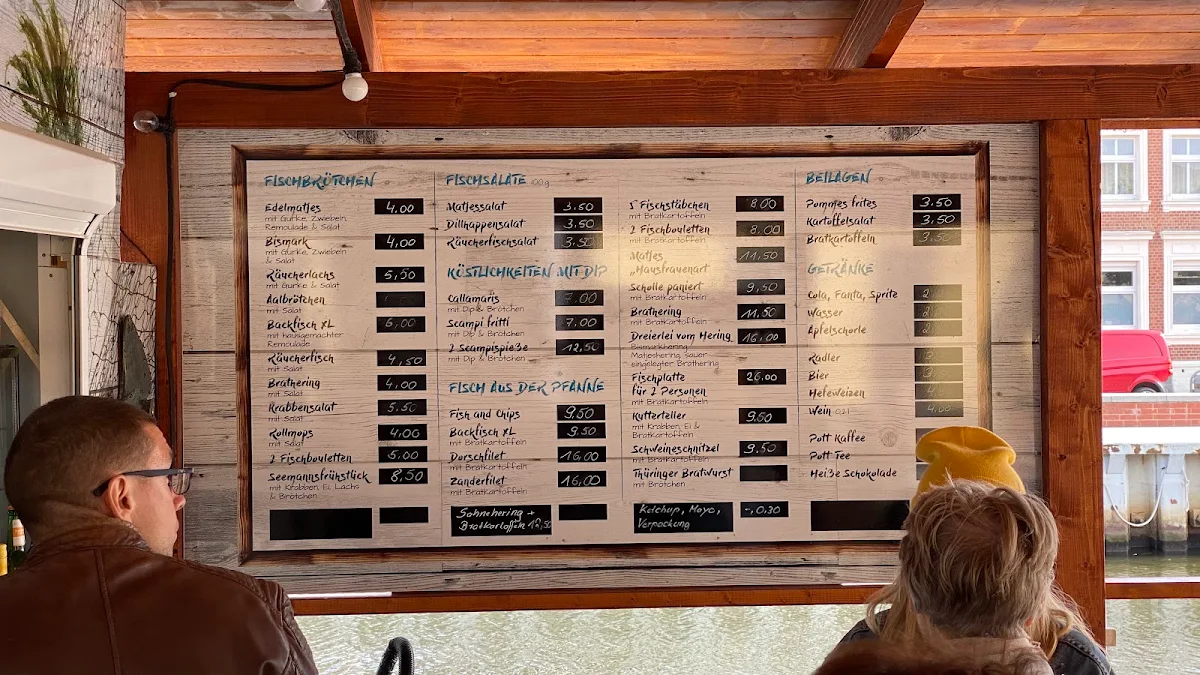 FISCHBRÖTCHEN
Edelmatjes 4,00
mit Gurke, Zwiebeln,
Remoulade & Salat
Bismark 4,00
mit Gurke, Zwiebeln
& Salat
Räucherlachs 5,50
mit Gurke & Salat
Aalbrötchen
mit Salat
Backfisch XL 6,00
mit hausgemachter
Remoulade
Räucherfisch 4,50
mit Salat
Brathering 4,00
mit Salat
Krabbensalat 5.50
mit Salat
Rollmops 4,00
mit Salat
2 Fischbouletten 5.00
Seemannsfrühstück 8,50
mit Krabben, Ei, Lachs
& Brötchen
FISCHSALATE 100g
Matjessalat 3.50
Dillhappensalat 3.50
Räucherfischsalat 3.50
KÖSTLICHKEITEN MIT DIP
Callamaris 7.00
mit Dip & Brötchen
Scampi fritti 7.00
mit Dip & Brötchen
2 Scampispieße 12,50
mit Dip & Brötchen
FISCH AUS DER PFANNE
Fish and Chips 9.50
Backfisch XL 9.50
mit Bratkartoffeln
Dorschfilet 16,00
mit Bratkartoffeln
Zanderfilet 16,00
mit Bratkartoffeln
Sahnehering +
Bratkartoffeln 12,50
5 Fischstäbchen 8.00
mit Bratkartoffeln
2 Fischbouletten 8.00
mit Bratkartoffeln
Matjes 11,50
„Hausfrauenart"
Scholle paniert 9,50
mit Bratkartoffeln
Brathering 11.50
mit Bratkartoffeln
Dreierlei vom Hering 16.00
Bismarkhering,
Matjeshering, sauer
eingelegter Brathering
Fischplatte 26.00
für 2 Personen
mit Bratkartoffeln
Kutterteller 9.50
mit Krabben, Ei &
Bratkartoffeln
Schweineschnitzel 9.50
mit Bratkartoffeln
Thüringer Bratwurst
mit Brötchen
Ketchup, Mayo, -,0.30
Verpackung
BEILAGEN
Pommes frites 3.50
Kartoffelsalat 3.50
Bratkartoffeln 3.50
GETRÄNKE
Cola, Fanta, Sprite
Wasser
Apfelschorle
Radler
Bier
Hefeweizen
Wein 0,2l 4,00
Pott Kaffee
Pott Tee
Heiße Schokolade